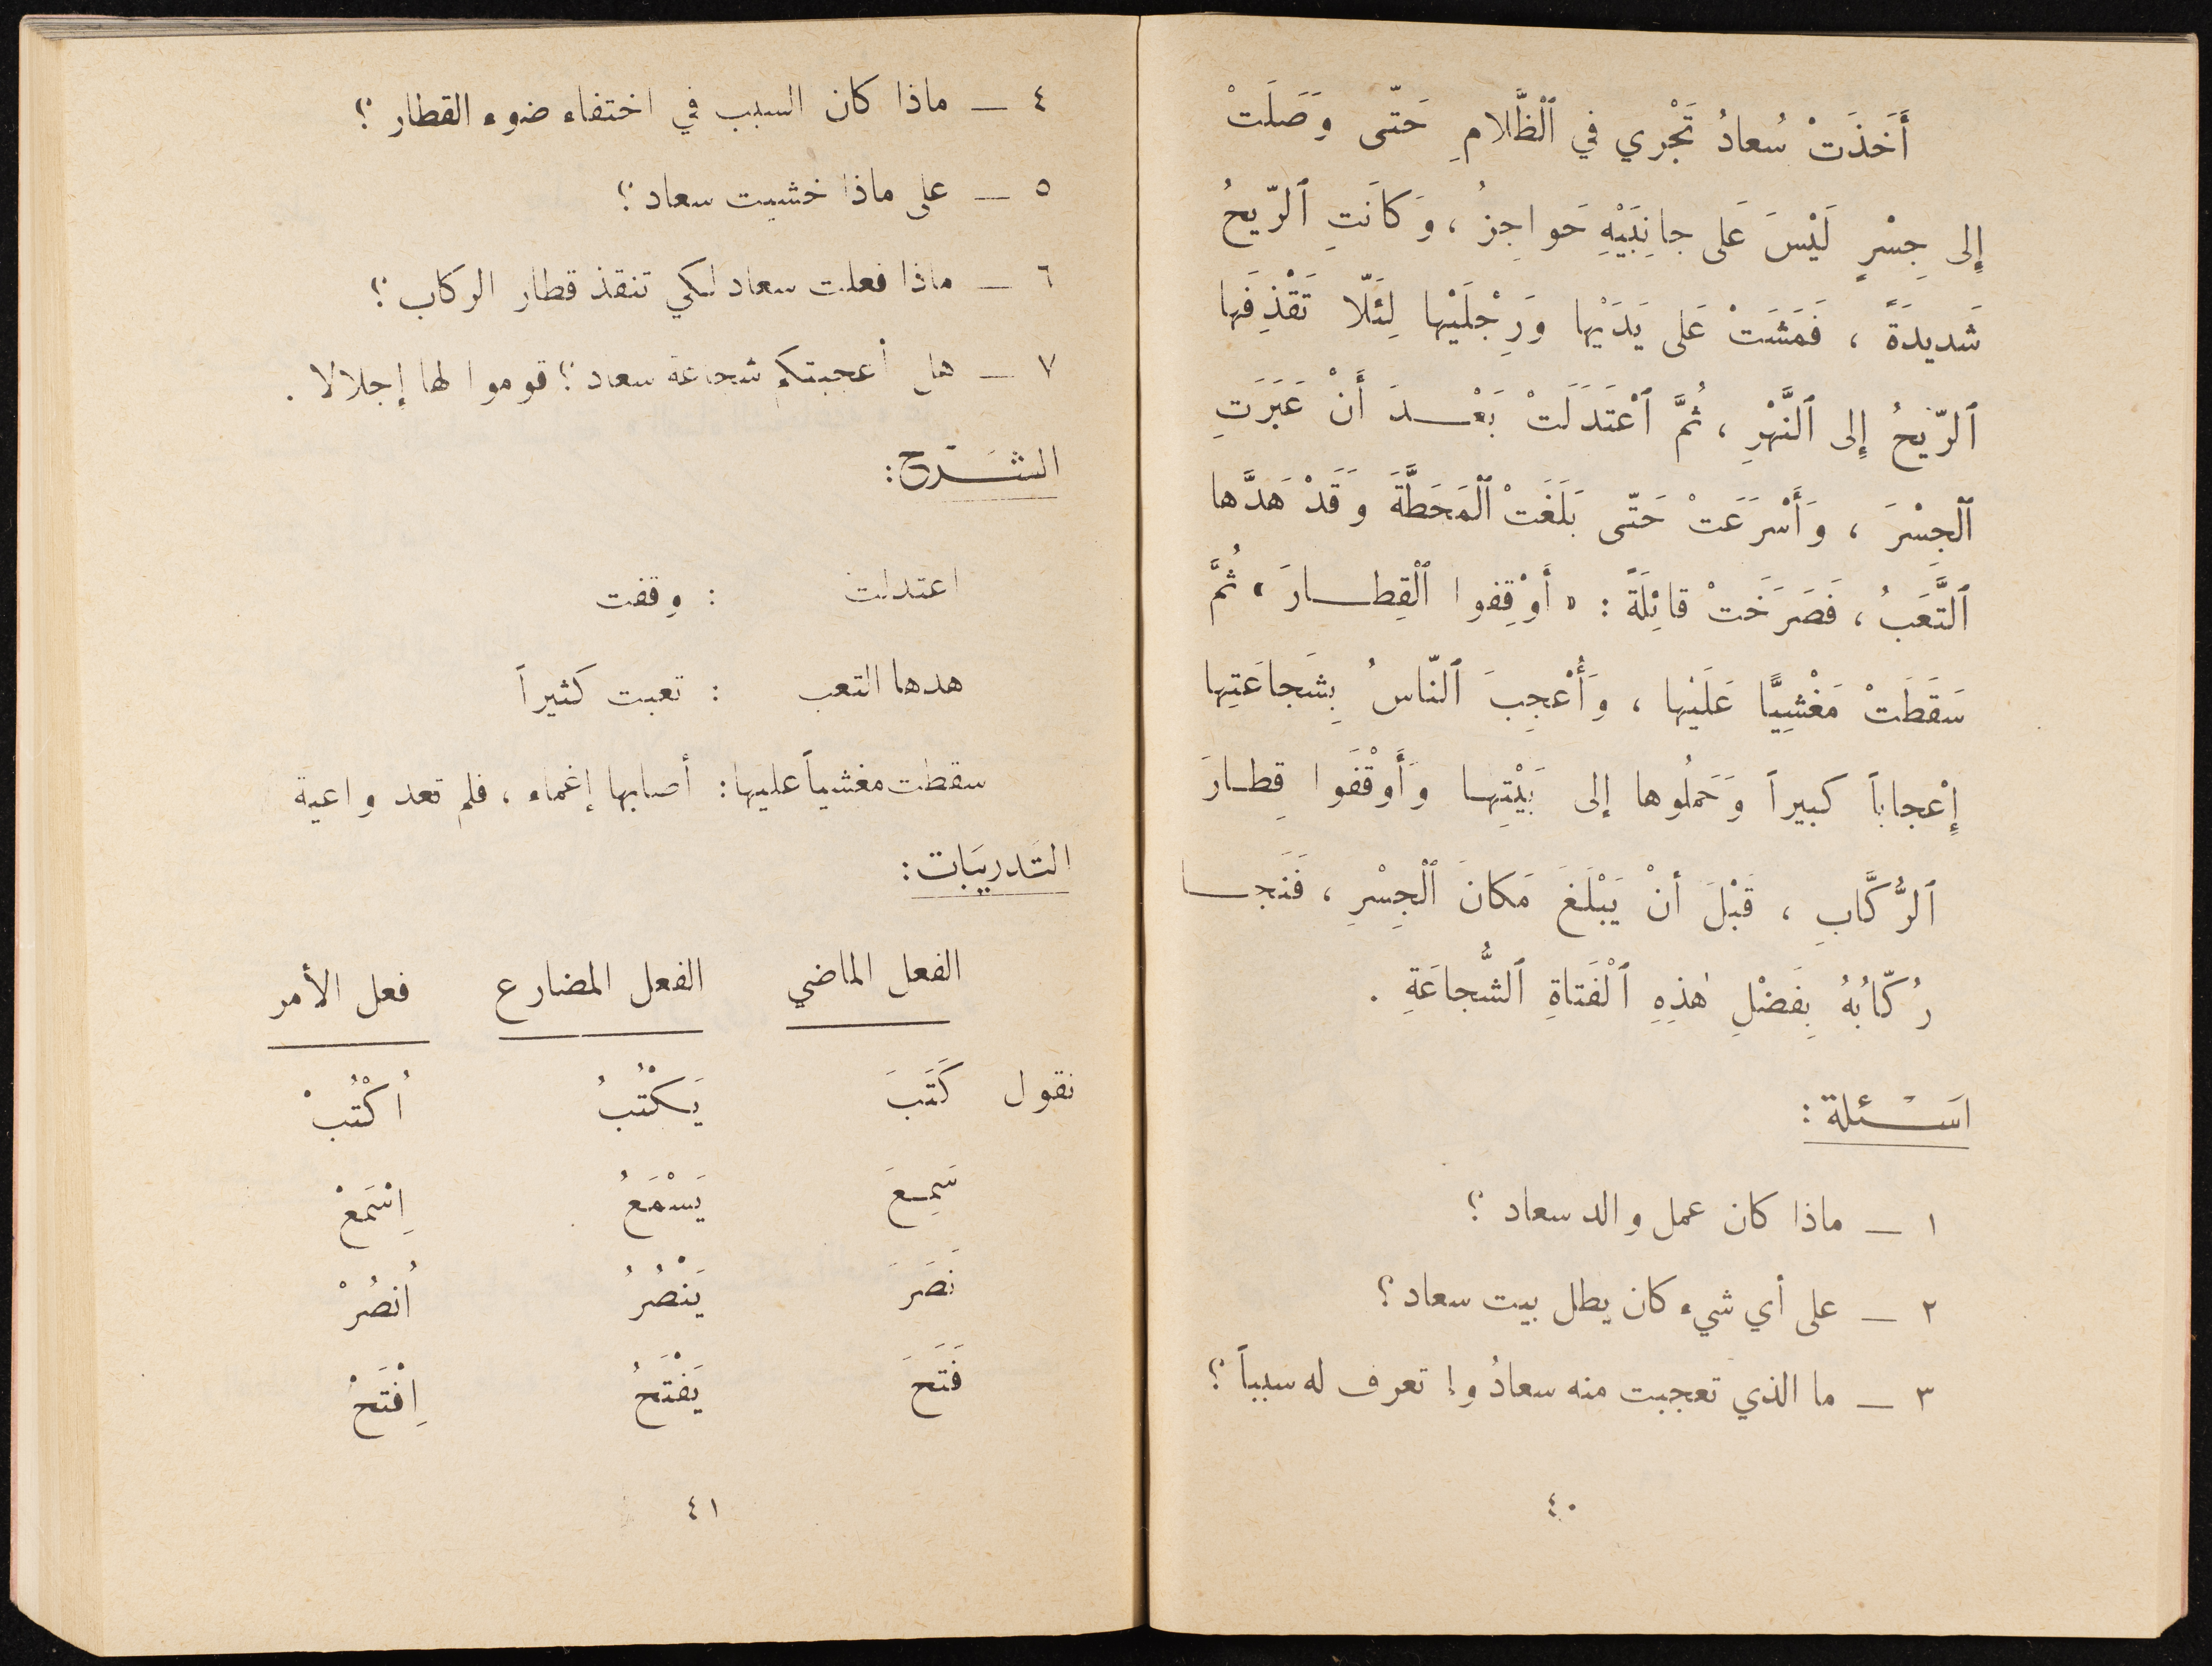 أَخَذَتْ سُعادُ تَجْري في ٱلْظَّلامِ حَتّى وَصَلَتْ
إلى جِسْرٍ لَيْسَ عَلى جانِبَيْهِ حَواجِزُ ، وَكانَتِ ٱلرّيحُ
شَديدَةً ، فَمَشَتْ عَلى يَدَيْها وَرِجْلَيْها لِئَلّا تَقْذِفَها
ٱلرّيحُ إلى ٱلنَّهْرِ ، ثُمَّ ٱعْتَدَلَتْ بَعْدَ أَنْ عَبَرَتِ
ٱلْجِسْرَ ، وَأَسْرَعَتْ حَتّى بَلَغَتْ ٱلْمَحَطَّةَ وَقَدْ هَدَّها
ٱلتَّعَبُ ، فَصَرَخَتْ قائِلَةً : « أَوْقِفوا ٱلْقِطارَ » ثُمَّ
سَقَطَتْ مَغْشِيًّا عَلَيْها ، وَأُعْجِبَ ٱلنّاسُ بِشَجاعَتِها
إِعْجاباً كبيراً وَحَمَلُوها إلى بَيْتِها وَأَوْقَفَوا قِطارَ
ٱلرُّكَّابِ ، قَبْلَ أنْ يَبْلَغَ مَكانَ ٱلْجِسْرِ ، فَنَجا
رُكّابُهُ بِفَضْلِ هٰذِهِ ٱلْفَتاةِ ٱلشُّجاعَةِ .
اسْئلة :
١ — ماذا كان عمل والد سعاد ؟
٢ — على أي شيء كان يطل بيت سعاد ؟
٣ — ما الذي تعجبت منه سعادُ و تعرف له سبباً ؟
٤٠
٤ — ماذا كان السبب في اختفاء ضوء القطار ؟
٥ — على ماذا خشيت سعاد ؟
٦ — ماذا فعلت سعاد لكي تنقذ قطار الركاب ؟
٧ — هل أعجبتكم شجاعة سعاد ؟ قوموا لها إجلالا .
الشَرح :
اعتدلت : وقفت
هدها التعب : تعبت كثيراً
سقطت مغشياً عليها : أصابها إغماء ، فلم تعد واعية
التَدريبَات :
الفعل الماضي الفعل المضارع فعل الأمر
نقول كَتَبَ يَكْتُبُ اُكْتُبْ
سَمِعَ يَسْمَعُ اِسْمَعْ
نَصَرَ يَنْصُرُ اُنصُرْ
فَتَحَ يَفْتَحُ اِفْتَحْ
٤١